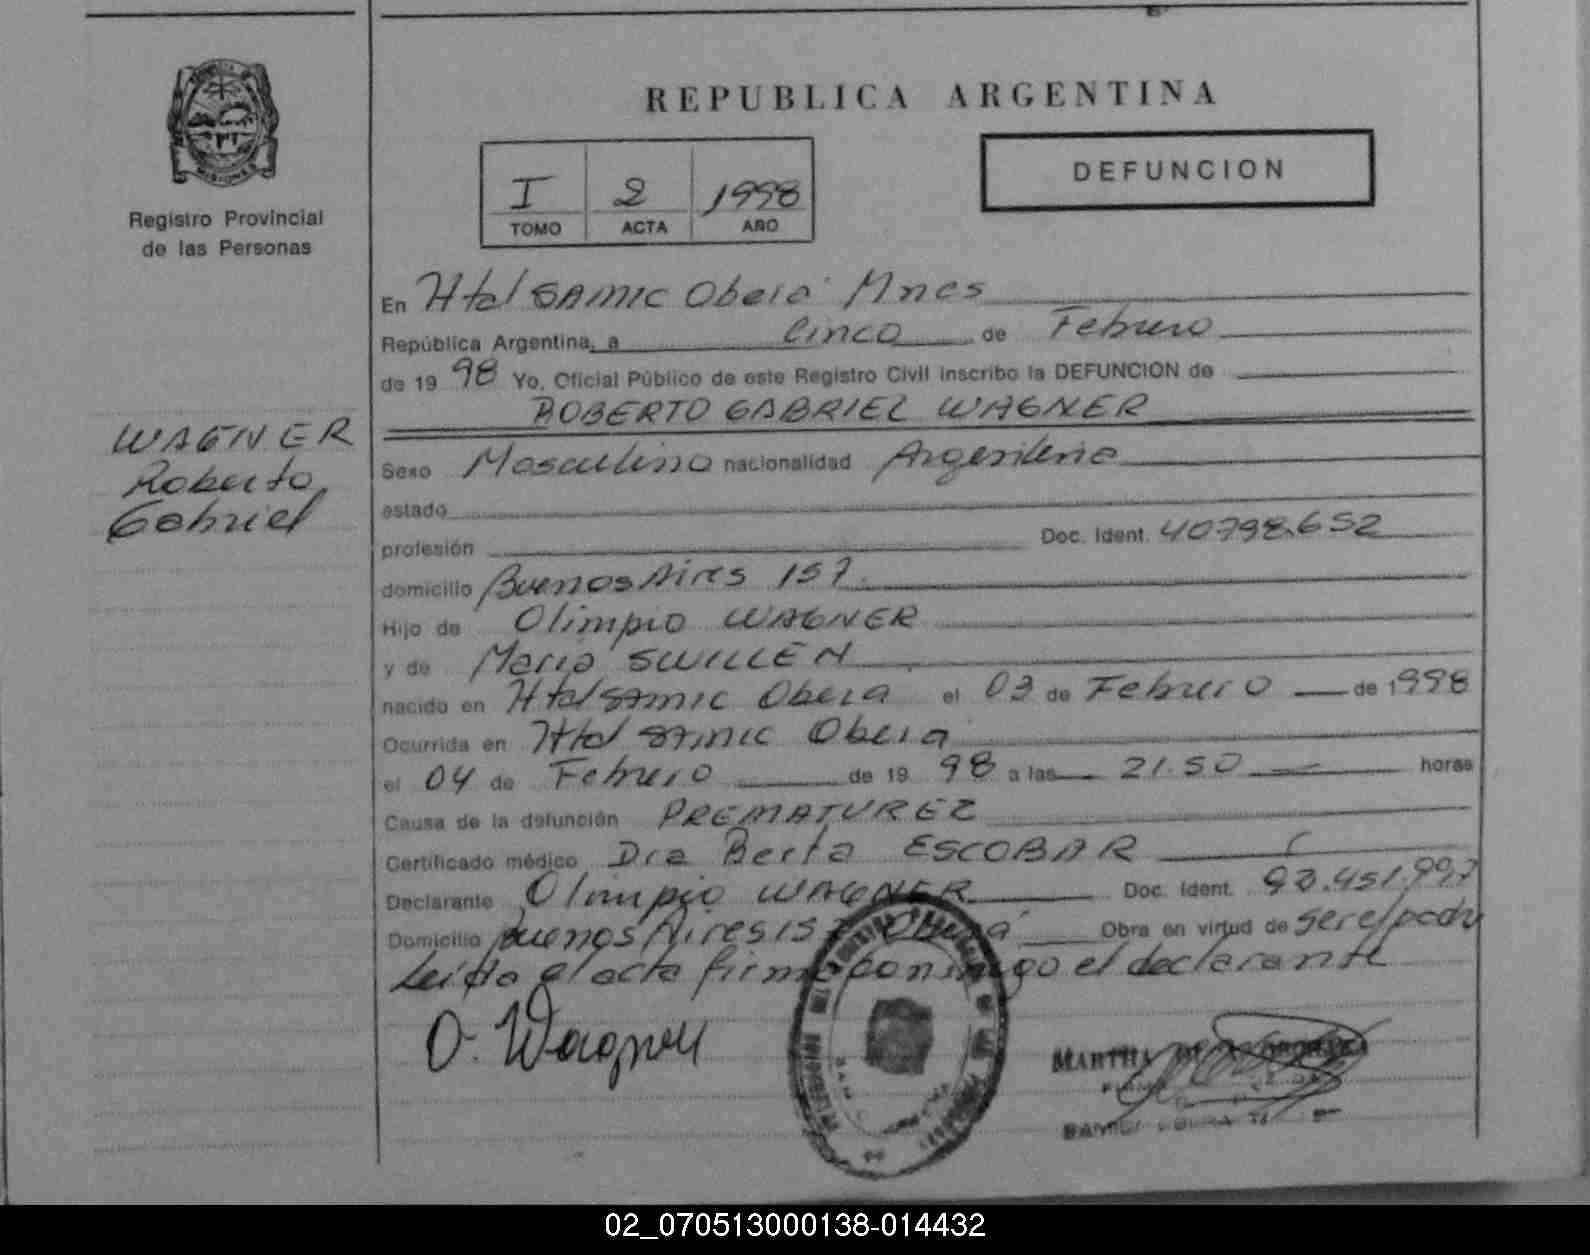 REPUBLICA ARGENTINA
MISIONES
Registro Provincial
de las Personas
I 2 1998
TOMO ACTA AÑO
DEFUNCION
En Htal SAMIC Oberá Mnes
República Argentina, a Cinco de Febrero
de 19 98 Yo, Oficial Público de este Registro Civil inscribo la DEFUNCION de
ROBERTO GABRIEL WAGNER
WAGNER
Roberto
Gabriel
Sexo Masculino nacionalidad Argentina
estado
profesión Doc. Ident. 40.798.652
domicilio Buenos Aires 157
Hijo de Olimpio WAGNER
y de Maria SWILLEN
nacido en Htal SAMIC Oberá el 03 de Febrero de 1998
Ocurrida en Htal SAMIC Oberá
el 04 de Febrero de 19 98 a las 21.50 horas
Causa de la defunción PREMATUREZ
Certificado médico Dra Berta ESCOBAR
Declarante Olimpio WAGNER Doc. Ident.
Domicilio Buenos Aires 157 Oberá Obra en virtud de ser el padre
Leída el acta firma conmigo el declarante
O. Wagner
MARTHA
02_070513000138-014432